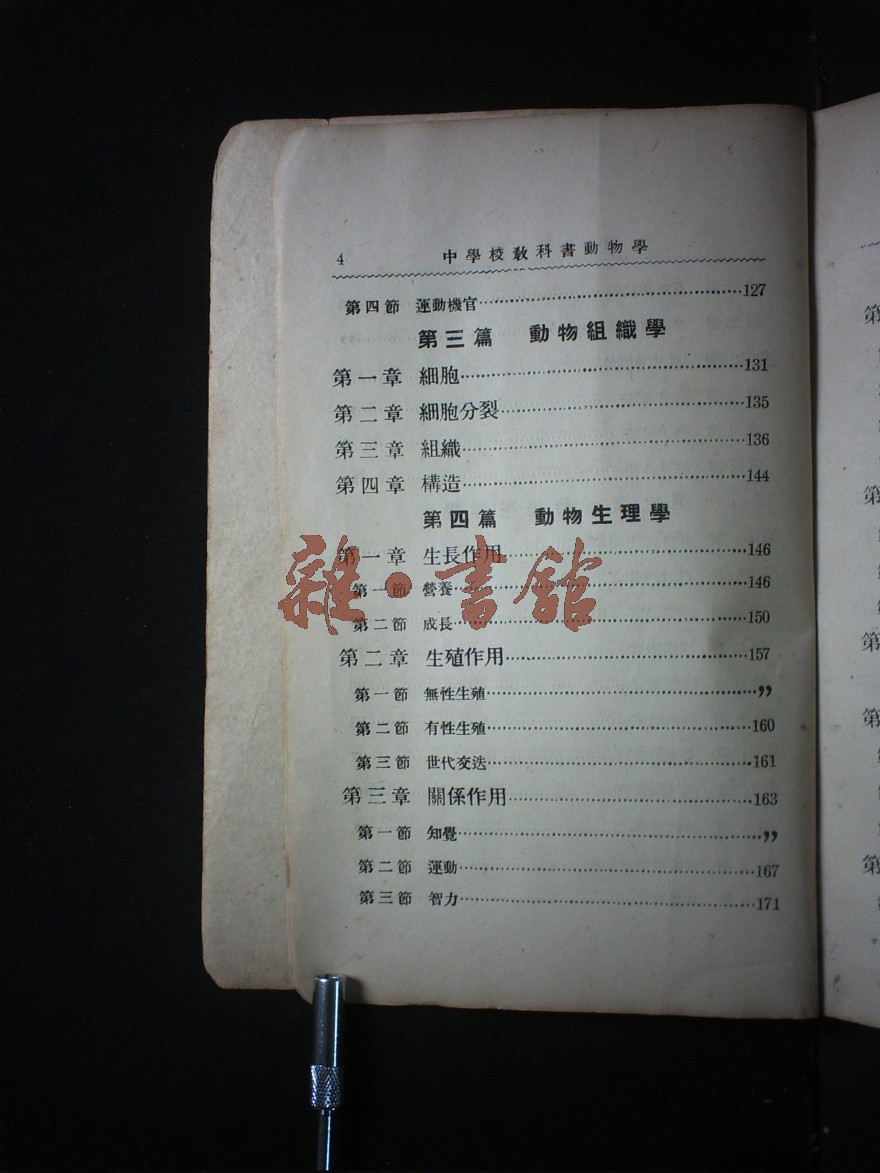 4 中學校教科書動物學
第四節 運動機官……127
第三篇 動物組織學
第一章 細胞……131
第二章 細胞分裂……135
第三章 組織……136
第四章 構造……144
第四篇 動物生理學
第一章 生長作用……146
第一節 營養……146
第二節 成長……150
第二章 生殖作用……157
第一節 無性生殖……”
第二節 有性生殖……160
第三節 世代交迭……161
第三章 關係作用……163
第一節 知覺……”
第二節 運動……167
第三節 智力……171
雜·書館